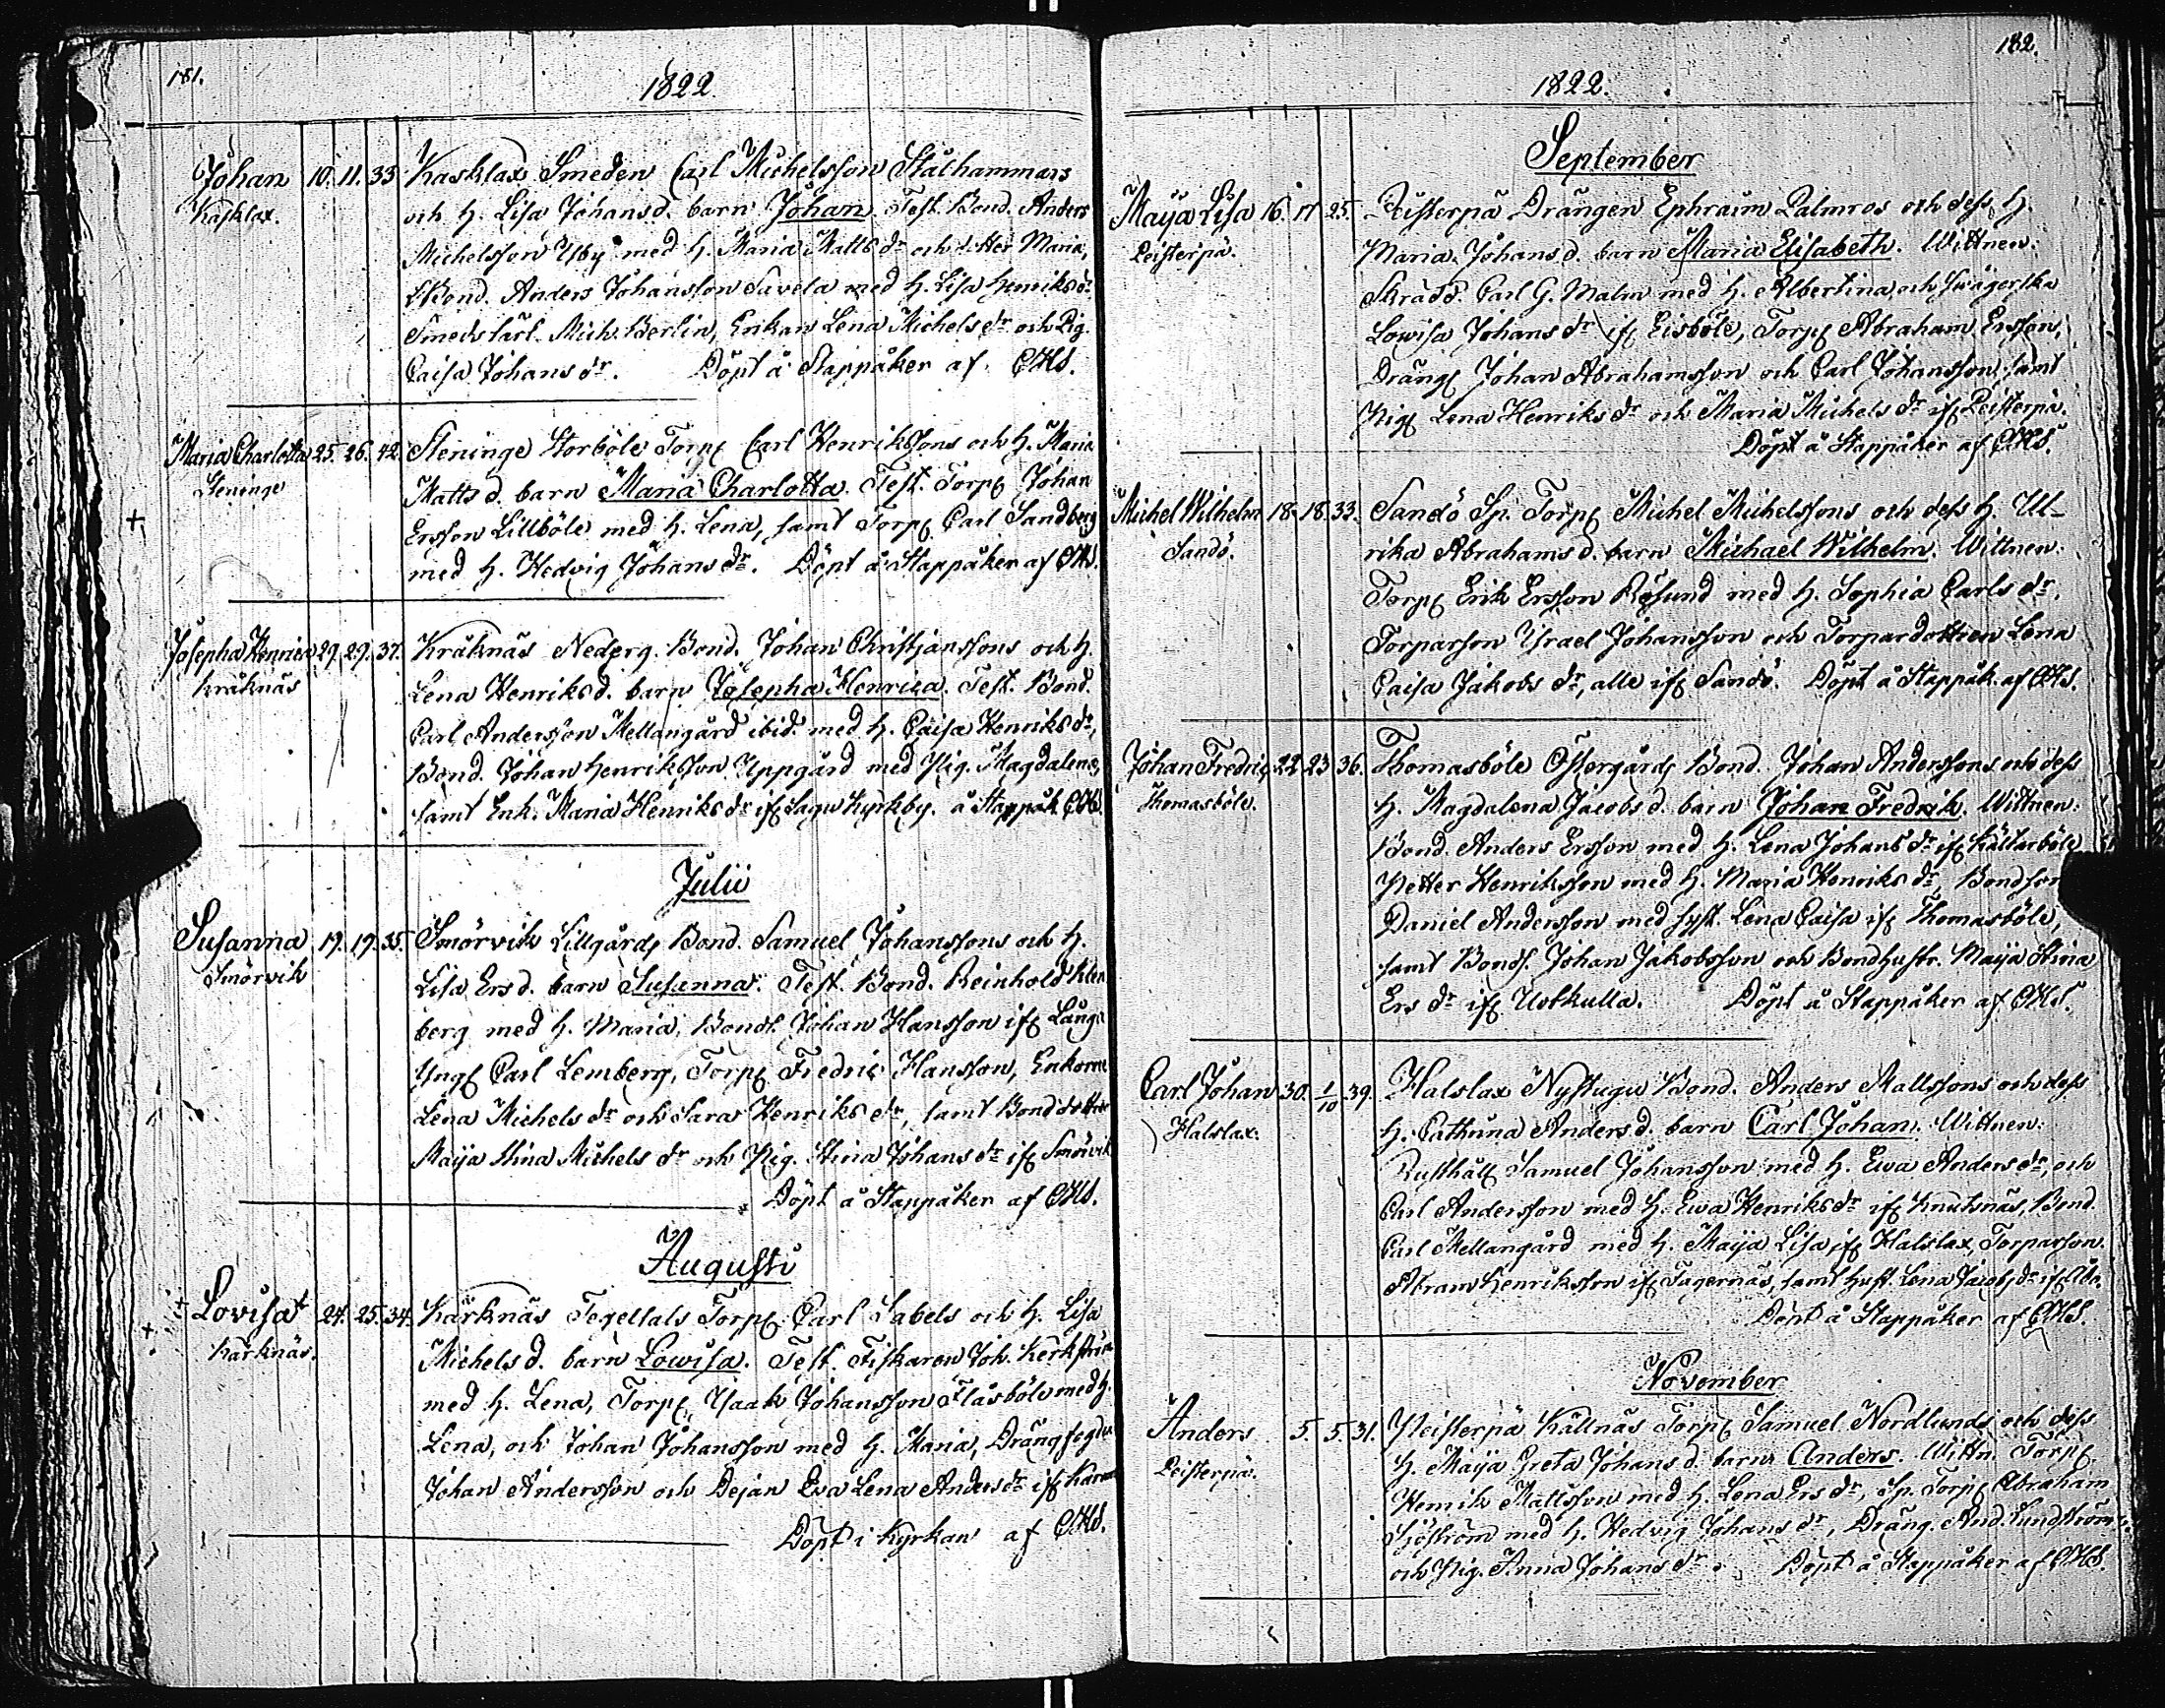 181.
1822
Johan 10. 11. 33 Kasklax Smeden Carl Michelsson Stålhammars
Kasklax.
och h. Lisa Johansd. barn Johan. Test. Bond. Anders
Michelsson Ysby med h. Maria Matts dr och dotter Maria,
Bond. Anders Johansson Savela med h. Lisa Henriksdr.
Smeds lärl. Mich. Berlin, Enkan Lena Michels dr och Pig.
Caisa Johans dr. Döpt å Stappåker af CHS.
Maria Charlotta 25. 26. 42. Steninge Storböle Torp. Carl Henrikssons och h. Maria
Steninge
Matts d. barn Maria Charlotta. Test. Torp. Johan
Ersson Lillböle med h. Lena, samt Torp. Carl Sandberg
med h. Hedvig Johans dr. Döpt å Stappåker af CHS.
Josepha Henrica 29. 29. 37. Kråknäs Nederg. Bond. Johan Christjanssons och h.
Kråknäs
Lena Henriksd. barn Josepha Henrica. Test. Bond.
Carl Andersson Mellangård ibid. med h. Caisa Henriks dr,
Bond. Johan Henriksson Uppgård med Pig. Magdalena,
samt Enk. Maria Henriks dr if. Sagu Kyrkby. å Stappåk. CHS.
Julii
Susanna 19. 19. 35. Smörvik Lillgårds Bond. Samuel Johanssons och h.
Smörvik
Lisa Ersd. barn Susanna. Test. Bond. Reinhold
berg med h. Maria, Bonds. Johan Hansson if.
Yngl. Carl Lemberg, Torp. Fredric Hansson, Enkorne
Lena Michels dr och Sara Henriks dr, samt Bonddotter
Maija Stina Michels dr och Pig. Stina Johans dr if. Smörvik
Döpt å Stappåker af CHS.
Augusti
Lovisa 24. 25. 34. Kärknäs Tegelsals Torp. Carl Sabels och h. Lisa
Kärknäs.
Michels d. barn Lowisa. Test. Fiskaren Joh.
med h. Lena, Torp. Isaak Johansson Flåsböle med h.
Lena, och Johan Johansson med h. Maria, Dräng
Johan Andersson och Dejan Eva Lena Anders dr if.
Döpt i Kyrkan af CHS.
182.
1822.
September
Maija Lisa 16. 17. 25. Peisterpä Drängen Ephraim Palmros och dess h.
Peisterpä.
Maria Johans d. barn Maria Elisabeth. Wittnen:
Skrädd. Carl G. Malm med h. Albertina, och Swägerska
Lowisa Johans dr if. Eisböle, Torp. Abraham Ersson,
Dräng. Johan Abrahamsson och Carl Johansson, samt
Pig. Lena Henriks dr och Maria Michels dr if. Peisterpä.
Döpt å Stappåker af CHS.
Michel Wilhelm 18. 18. 33. Sandö Sp. Torp. Michel Michelssons och dess h. Ul-
Sandö.
rika Abrahams d. barn Michael Wilhelm. Wittnen:
Torp. Erik Ersson Rösund med h. Sophia Carls dr,
Torparson Israel Johansson och Torpardottren Lena
Caisa Jakobs dr, alle if. Sandö. Döpt å Stappåk. af CHS.
Johan Fredric 22. 23. 36. Thomasböle Östergårds Bond. Johan Anderssons och dess
Thomasböle.
h. Magdalena Jacobs d. barn Johan Fredrik. Wittnen:
Bond. Anders Ersson med h. Lena Johans dr if. Källarböle
Petter Henriksson med h. Maria Henriks dr, Bondson
Daniel Andersson med syst. Lena Caisa if. Thomasböle,
samt Bonds. Johan Jakobsson och Bondhustr. Maija Stina
Ers dr if. Utkulla. Döpt å Stappåker af CHS.
Carl Johan 30. 1/10 39. Halslax Nystugu Bond. Anders Mattssons och dess
Halslax.
h. Cathrina Anders d. barn Carl Johan. Wittnen:
Rusthåll. Samuel Johansson med h. Ewa Anders dr, och
Carl Andersson med h. Ewa Henriks dr if. Knutsnäs, Bond.
Carl Mellangård med h. Maija Lisa if. Halslax, Torparson
Abram Henriksson if. Fagernäs, samt hust. Lena Jacobs dr if. Åbo.
Döpt å Stappåker af CHS.
November
Anders 5. 5. 31. Peisterpä Källnäs Torp. Samuel Nordlunds och dess
Peisterpä.
h. Maija Greta Johans d. barn Anders. Wittn. Torp.
Henrik Mattsson med h. Lena Ers dr, Sp. Torp. Abraham
Sjöström med h. Hedvig Johans dr, Dräng. And. Lundström
och Pig. Anna Johans dr. Döpt å Stappåker af CHS.